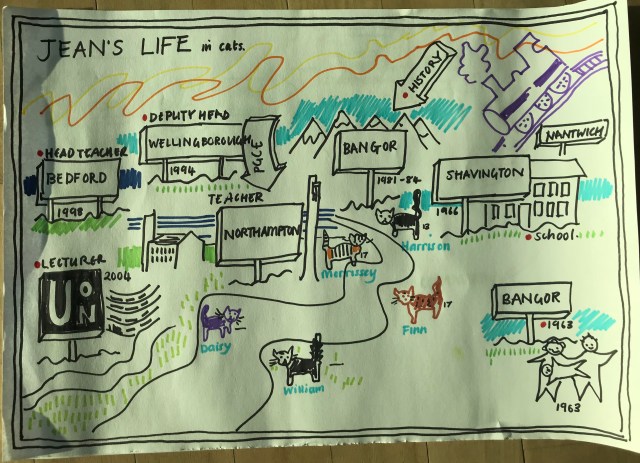 JEAN'S LIFE in cats.
HISTORY
DEPUTY HEAD
WELLINGBOROUGH
1994
PGCE
BANGOR
1981-84
NANTWICH
HEAD TEACHER
BEDFORD
1998
SHAVINGTON
1966
School.
TEACHER
NORTHAMPTON
13
Harrison
17
Morrissey
LECTURER
2004
UoN
Dairy
Finn
17
William
BANGOR
1963
1963